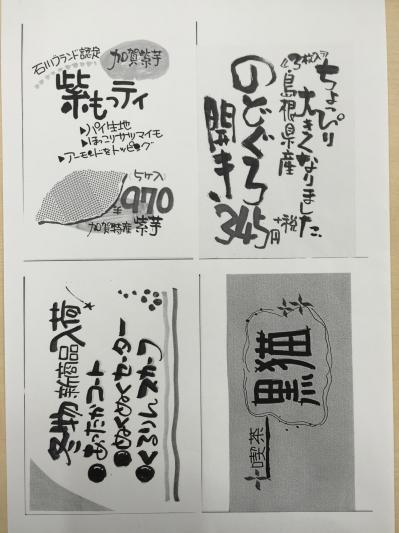 石川ブランド認定
加賀紫芋
紫もっティ
▶パイ生地
▶ほっこりサツマイモ
▶アーモンドをトッピング
5ヶ入
¥970
加賀特産 紫芋
ちょっぴり
大きくなりました。
《3枚入》
島根県産
のどぐろ
開き
345円
+税
冬物 新商品 入荷
●あったかコート
●ぬくぬくセーター
●くるりんスカーフ
喫茶
黒猫